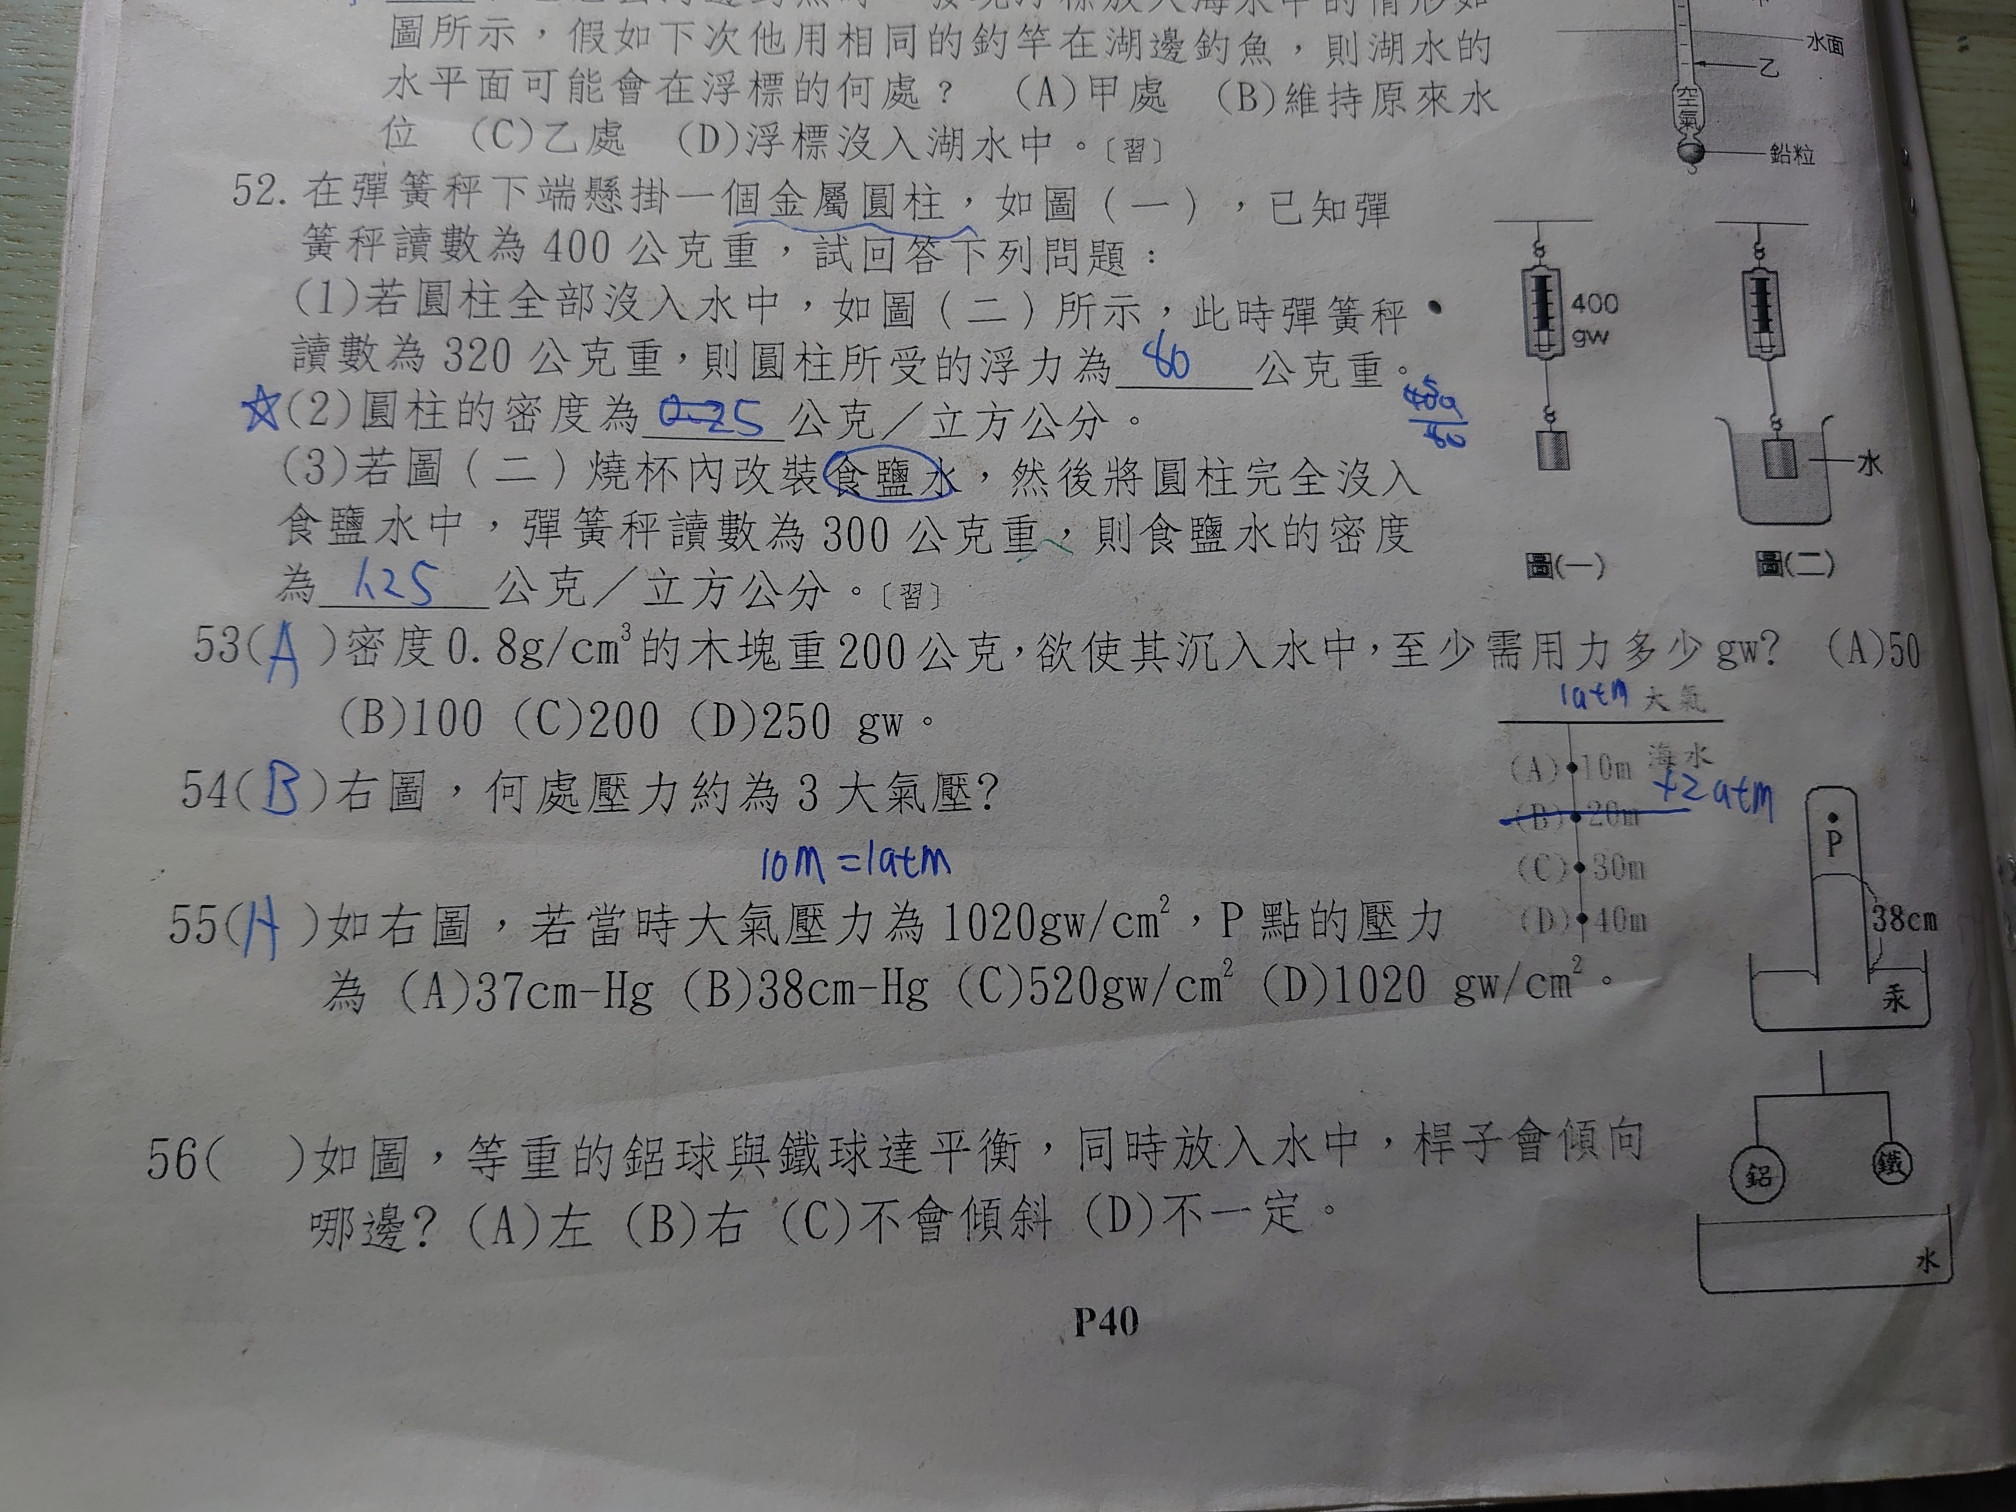 圖所示，假如下次他用相同的釣竿在湖邊釣魚，則湖水的
水平面可能會在浮標的何處？ (A)甲處 (B)維持原來水
位 (C)乙處 (D)浮標沒入湖水中。〔習〕
水面
乙
空氣
鉛粒
52.在彈簧秤下端懸掛一個金屬圓柱，如圖(一)，已知彈
簧秤讀數為400公克重，試回答下列問題：
(1)若圓柱全部沒入水中，如圖(二)所示，此時彈簧秤
讀數為320公克重，則圓柱所受的浮力為 80 公克重。
☆(2)圓柱的密度為 公克／立方公分。
(3)若圖(二)燒杯內改裝食鹽水，然後將圓柱完全沒入
食鹽水中，彈簧秤讀數為300公克重，則食鹽水的密度
為 1.25 公克／立方公分。〔習〕
400
gw
水
圖(一)
圖(二)
53(A)密度0.8g/cm³的木塊重200公克，欲使其沉入水中，至少需用力多少gw? (A)50
(B)100 (C)200 (D)250 gw。
54(B)右圖，何處壓力約為3大氣壓?
10m=1atm
1atm 大氣
(A) 10m 海水
+2atm
(B) 20m
(C) 30m
(D) 40m
55(A)如右圖，若當時大氣壓力為1020gw/cm²，P點的壓力
為 (A)37cm-Hg (B)38cm-Hg (C)520gw/cm² (D)1020 gw/cm²。
P
38cm
汞
56( )如圖，等重的鋁球與鐵球達平衡，同時放入水中，桿子會傾向
哪邊? (A)左 (B)右 (C)不會傾斜 (D)不一定。
鋁
鐵
水
P40